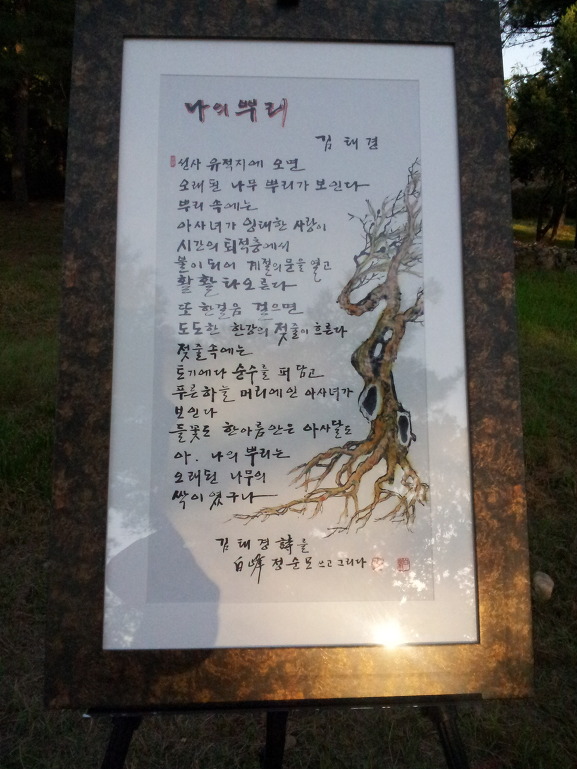 나의 뿌리
김태경
선사 유적지에 오면
오래된 나무 뿌리가 보인다
뿌리 속에는
아사녀가 잉태한 사랑이
시간의 퇴적층에서
불이 되어 계절의 문을 열고
활활 타오른다
또 한걸음 걸으면
도도한 한강의 젖줄이 흐른다
젖줄속에는
토기에다 순수를 퍼 담고
푸른하늘 머리에인 아사녀가
보인다
들꽃도 한아름안은 아사달도
아. 나의 뿌리는
오래된 나무의
싹이였구나
김태경 詩를
白峰 정순모 쓰고 그리다